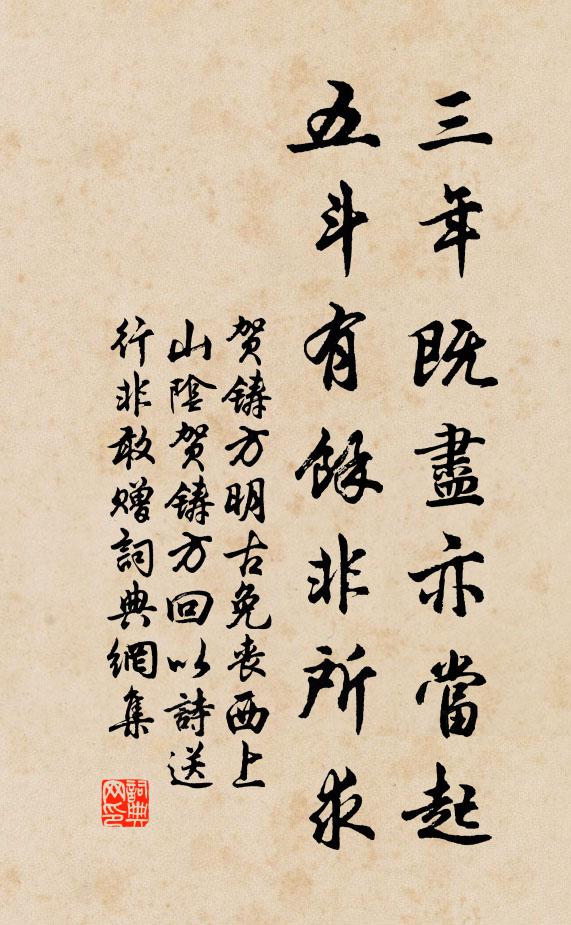 三年既盡亦當起
五斗有餘非所求
贺鑄方明古免丧西上
山陰贺鑄方回以詩送
行非敢赠詞典網集
詞典网印